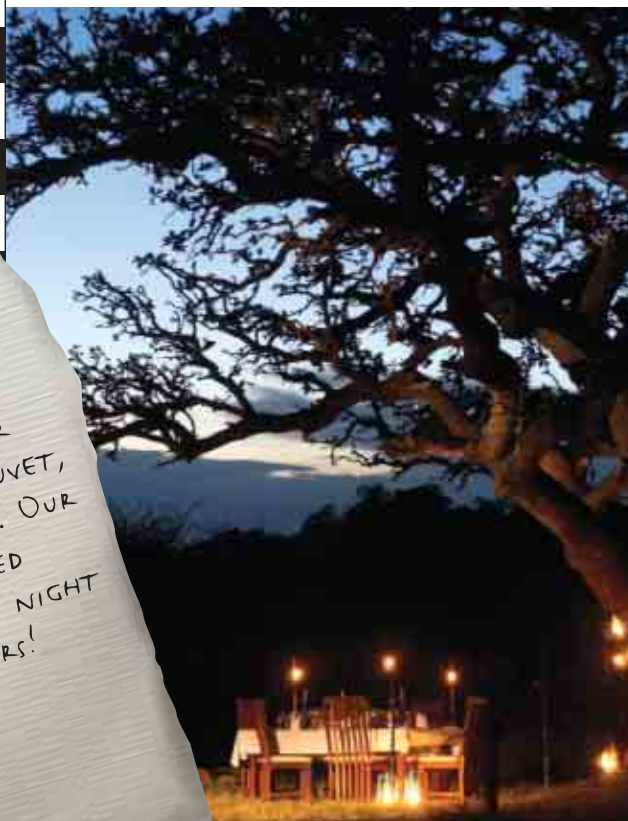 UVET,
. OUR
ED
NIGHT
RS!